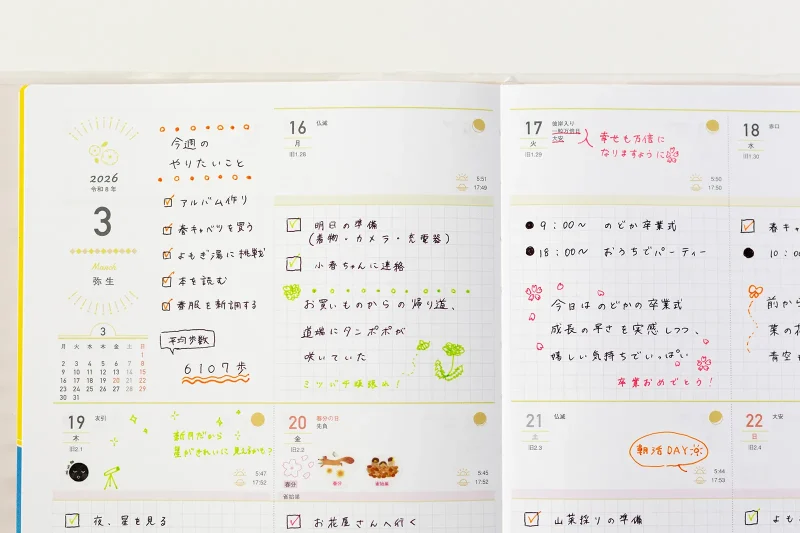 2026
令和8年
3
March
弥生
3
月 火 水 木 金 土 日
1
2 3 4 5 6 7 8
9 10 11 12 13 14 15
16 17 18 19 20 21 22
23 24 25 26 27 28 29
30 31
今週の
やりたいこと
アルバム作り
春キャベツを買う
よもぎ湯に挑戦
本を読む
春服を新調する
平均歩数
6107歩
16 仏滅
月
旧1.28
5:51
17:49
明日の準備
(着物・カメラ・充電器)
小春ちゃんに連絡
お買いものからの帰り道、
道端にタンポポが
咲いていた
ミツバチ様読め!
17 彼岸入り
一粒万倍日
大安
火
旧1.29
幸せも万倍に
なりますように
5:50
17:50
9:00〜 のどか卒業式
18:00〜 おうちでパーティー
今日はのどかの卒業式
成長の早さを実感しつつ、
嬉しい気持ちでいっぱい
卒業おめでとう!
18 赤口
水
旧1.30
春キャ
10:0
前か
菜の花
青空
19 友引
木
旧2.1
新月だから
星がきれいに見えるかも?
5:47
17:52
夜、星を見る
20 春分の日
先負
金
旧2.2
春分
春分
雀始巣
5:45
17:52
雀始巣
お花屋さんへ行く
21 仏滅
土
旧2.3
朝活DAY
5:44
17:53
山菜採りの準備
22 大安
日
旧2.4
よも